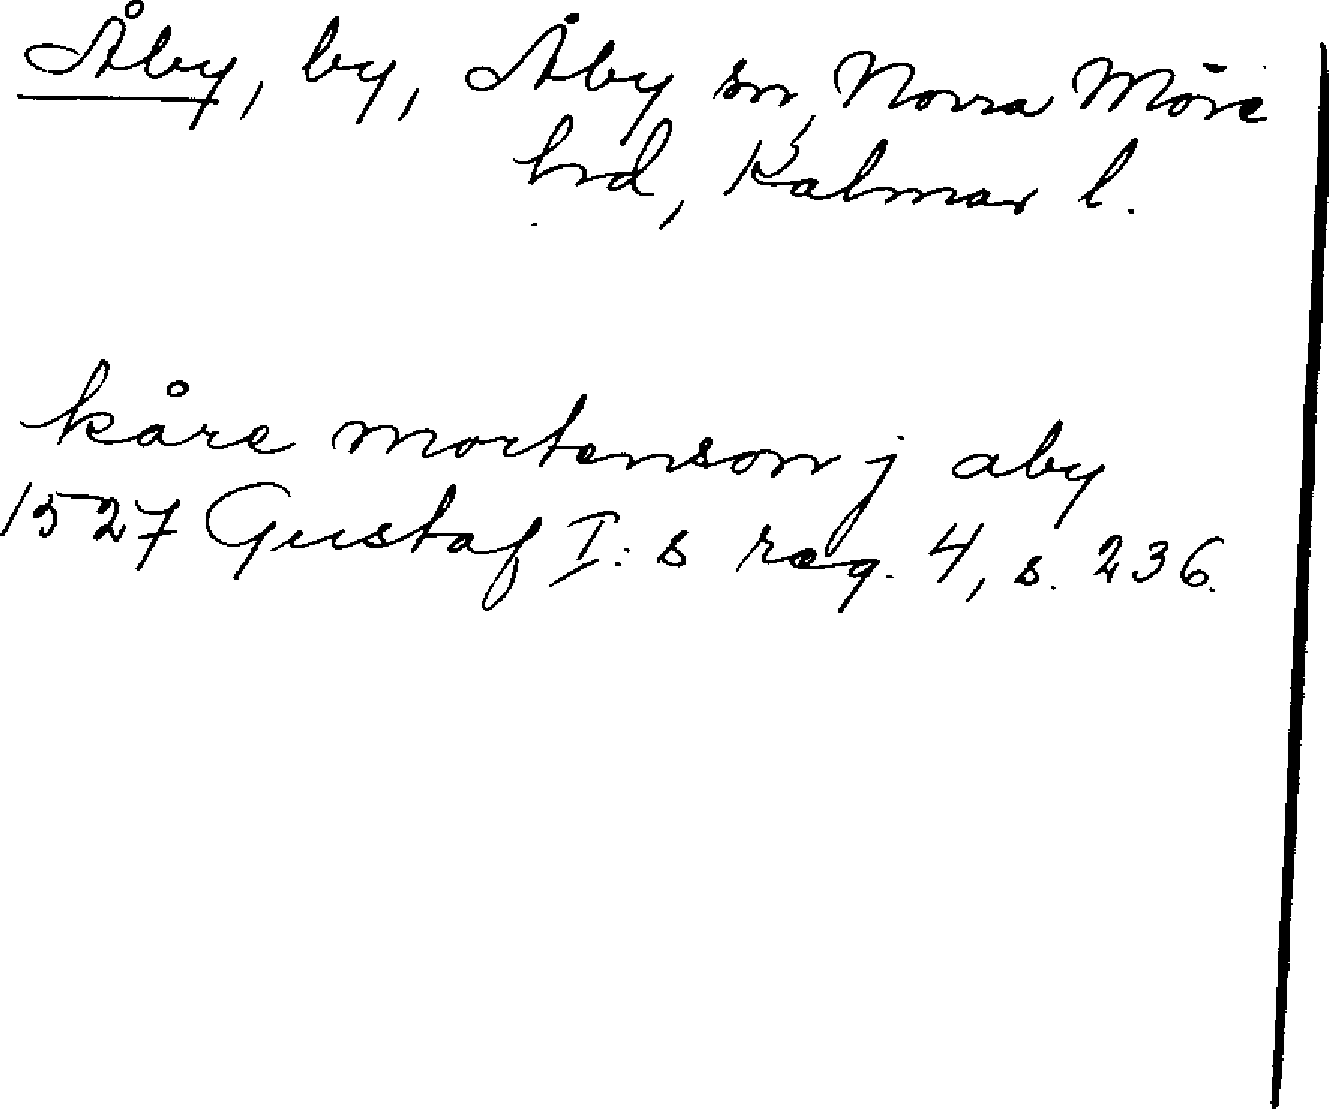 Åby, by, Åby sn, Norra Möre
hrd, Kalmar l.
kåre mortenson j aby
1527 Gustaf I:s reg. 4, s. 236.